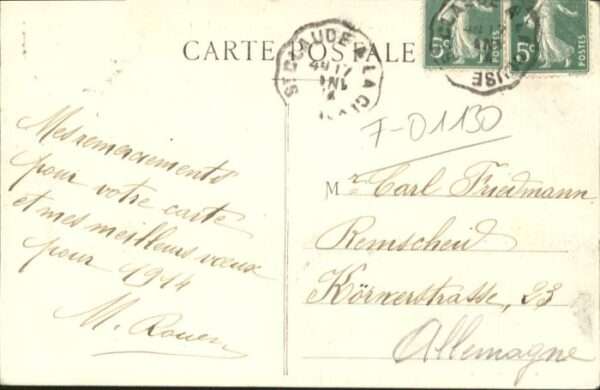 CARTE POSTALE
5c
5c
ST CLAUDE A LA CLUSE
F-01130
Mes remerciements
pour votre carte
et mes meilleurs vœux
pour 1914
M. Rouen
Mr Carl Friedmann
Remscheid
Körnerstrasse, 23
Allemagne